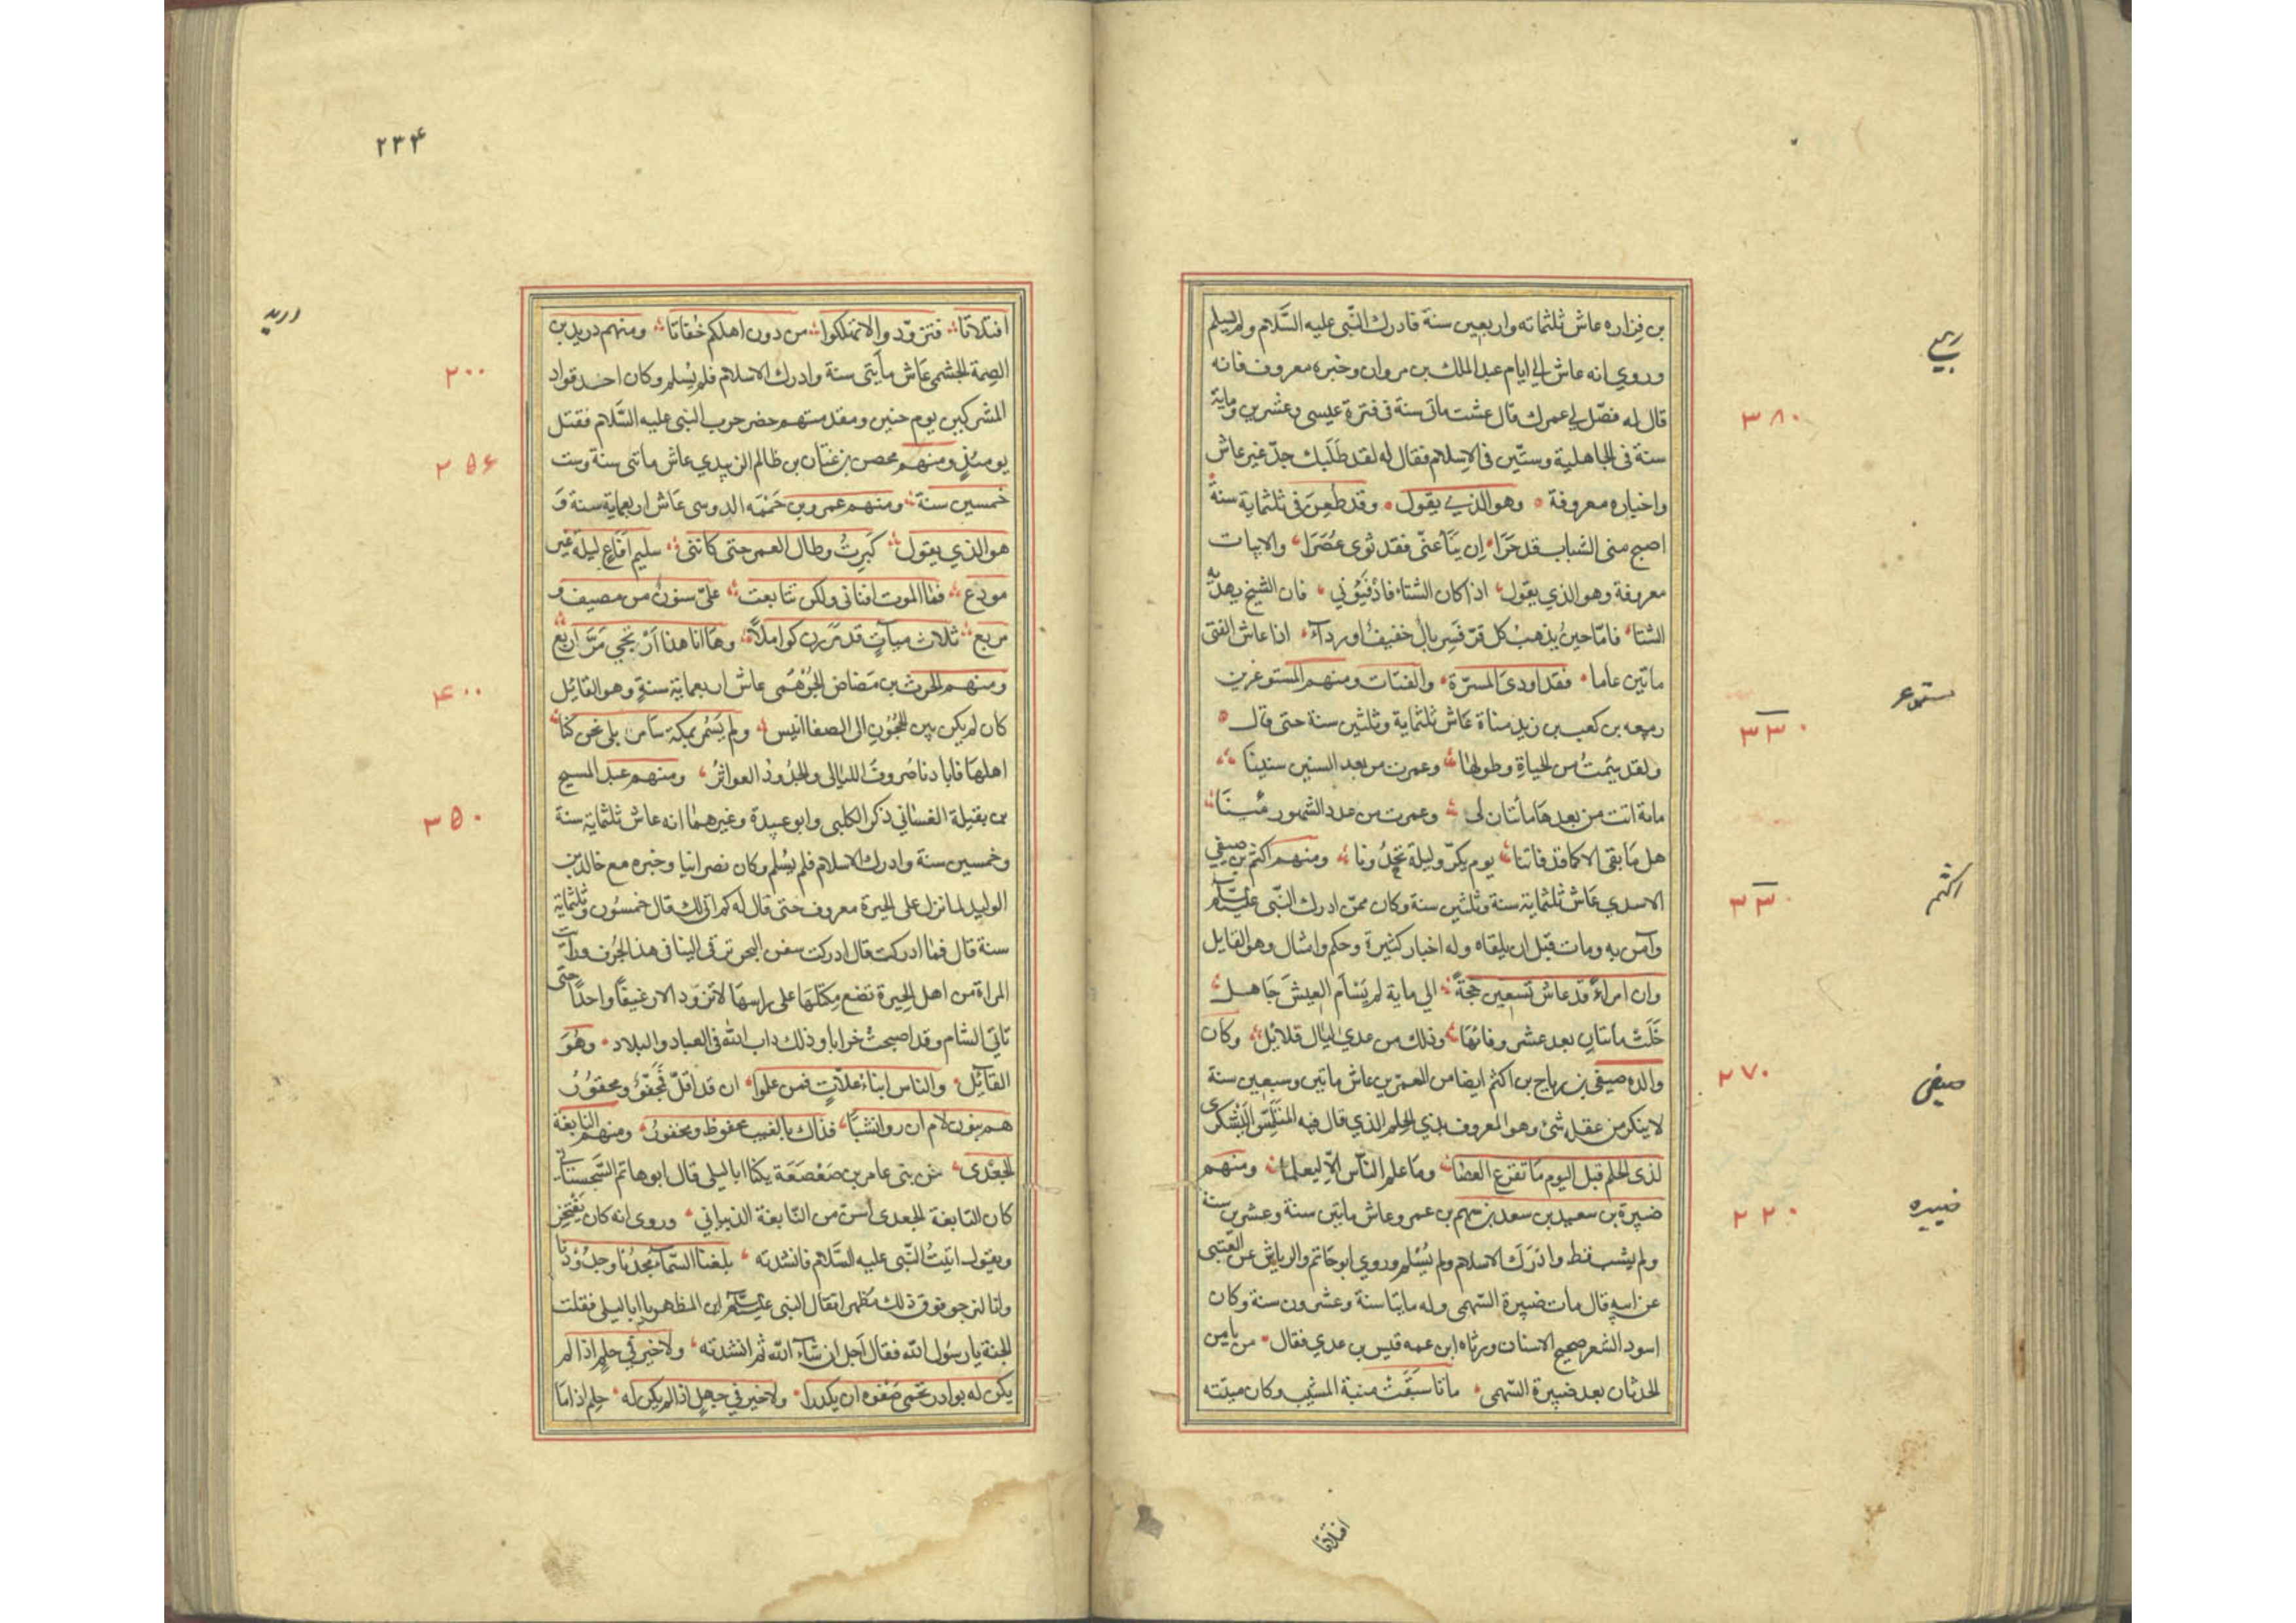 بن فزاره عاش ثلثماته واربعين سنة فادرك النّبى عليه السَّلام ولم يسلم
وروي انه عاش الى ايام عبد الملك بن مروان وخبره معروف فانه
قال له فصّل لي عمرك قال عشت مأتى سنة فى فترة عيسى وعشرين وماية
سنة فى الجاهلية وستّين فى الاسلام فقال له لقد طَلَبك جدّ غير عاش
واخباره معروفة وهو الذي يقول وقد طُعِنَ فى ثلثماية سنة
اصبح منى الشباب قد حَرَا اِن يَنأ عنّى فقد ثوى عُصَرَا والابيات
معروفة وهو الذي يقول اذا كان الشتاء فادْفِئُونِي فان الشيخ يهدمه
الشتا فامّا حين يذهب كل قرّ فسِربالٌ خفيفٌ او ردآء اذا عاش الفتى
ماتين عاما فقد اودى المسرّة والفتات ومنهم المستوغر بن
ربيعه بن كعب بن زيد مناة عَاش ثلثماية وثلثين سنة حتى قال
ولقد سَئمتُ من الحياةِ وطولها وعمرت من بعد السنين سنينا
مائة اتت من بعدها مأتان لى وعمرت من عدد الشهور مئينَا
هل مَا بقى الا كما قد فاتنا يوم يكرّ وليلة تحدُونا ومنهم اكثم بن صيفي
الاسدي عَاش ثلثماية سنة وثلثين سنة وكان ممّن ادرك النّبى عليه السلام
وآمن به ومات قبل ان يلقاه وله اخبار كثيرة وحكم وامثال وهو القايل
وان امراءً قد عاش تسعين حجةً الى ماية لم يَسْأم العيشَ جَاهل
خَلَتْ مأتان بعد عشر وفائها وذلك من عدي ليال قلائل وكان
والده صيفى بن رباح بن اكثم ايضا من المعمّرين عاش ماتين وسبعين سنة
لا ينكر من عقله شئ وهو المعروف بذي الحِلم الذي قال فيه المتلمّس اليَشكرى
لذى الحلم قبل اليوم مَا تقرع العصَا ومَا علم النّاس الّا ليعلما ومنهم
ضبيرة بن سعيد بن سعد بن سهم بن عمرو عاش مايتى سنة وعشرين سنة
ولم يشب قط وادْرَكَ الاسلام ولم يُسْلم وروي ابو حَاتم والرياشى عن العتبى
عن ابيه قال مات ضبيرة السّهمى وله مايتا سنة وعشرون سنة وكان
اسود الشعر صحيح الاسنان ورثاه ابن عمه قيس بن عدي فقال من يامن
الحدثان بعد ضبيرة السّهمى ماتا سَبَقَتْ منية المشيب وكان ميتته
افتلاتا
ربيع
٣٨٠
مستوغر
٣٣٠
اكثم
٣٣٠
صيفى
٢٧٠
ضبيره
٢٢٠
٢٣۴
افتلاتا فتزوّدوا لا تهلكوا من دون اهلكم خُفاتا ومنهم دريد بن
الصِمة الجشمى عَاش مأيتى سنة وادرك الاسلام فلم يُسلم وكان احد قواد
المشركين يوم حنين ومقدمتهم حضر حرب النبى عليه السَّلام فقتل
يومئذٍ ومنهم محصن بن غتبان بن ظالم الزبيدي عاش ماتى سنة وست
خمسين سنة ومنهم عمرو بن حَمَمَه الدوسى عَاش اربعماية سنة وَ
هو الذي يقول كَبِرتُ وطال العمر حتى كاننى سليم افَاعٍ ليلة غير
مودع فما الموت افنانى ولكن تتابعت علىّ سنونٌ من مصيف و
مربع ثلاث ميآتٍ قد مَررن كواملاً وهَا انا هذا اَرْتجي مَرّ اربع
ومنهم الحرث بن مَضاض الجُرْهُمى عاش اربعماية سنةٍ وهو القائل
كان لم يكن بين الحجُون الى الصفا انيس ولم يَسْمُر بمكة سَامر بلى نحن كنا
اهلهَا فابادنا صُروفَ الليالى والجُدُودُ العواثرُ ومنهم عبد المسيح
بن بقيلة الغسانى ذكر الكلبى وابو عبيدة وغيرهما انه عاش ثلثماية سنة
وخمسين سنة وادرك الاسلام فلم يُسْلم وكان نصرانيا وخبره مع خالد بن
الوليد لما نزل على الحيرة معروف حتى قال له كم اتى لك قال خمسُون وثلثماية
سنة قال فما ادركت قال ادركت سفن البحر ترقى الينا فى هذا الجُرف ورايت
المراة من اهل الحِيرة تضع مِكتلهَا على راسهَا لا تزوّد الا رغيفًا واحدًا حتى
تاتى الشام وقد اصبحتْ خرابا وذلك داب الله فى العباد والبلاد وهُوَ
القائل والناس ابناءُ علّاتٍ فمن علموا ان قد اقلّ فَمجْفوّ ومحقوُرُ
هم بنون لام ان روا نشبًا فذاك بالغيب محفوظ ومخفور ومنهم النابغة
الجعْدى من بنى عامر بن صَعْصَعَة يكنا ابا ليلى قال ابو هاتم السّجستانى
كان النابغة الجعدى اسنّ من النّابغة الذبيانى وروى انه كان يَفْتخِر
ويقول اتيتُ النّبى عليه السَّلام فانشدته بلغنا السّمآء مجدُنا وجدُوْدُنا
وانا لنرجو فوق ذلك مَظهرا فقال النبى عليه السلام اين المظهر يا ابا ليلى فقلت
الجنة يا رسُول الله فقال اَجل ان شآء الله ثم انشدته ولا خير في حلمٍ اذا لم
يكن له بوادر تحمى صَفوه ان يكدرا ولا خير في جهلٍ اذا لم يكن له حِلم اذا مَا
دريد
٢٠٠
٢۵۶
۴٠٠
٣۵٠